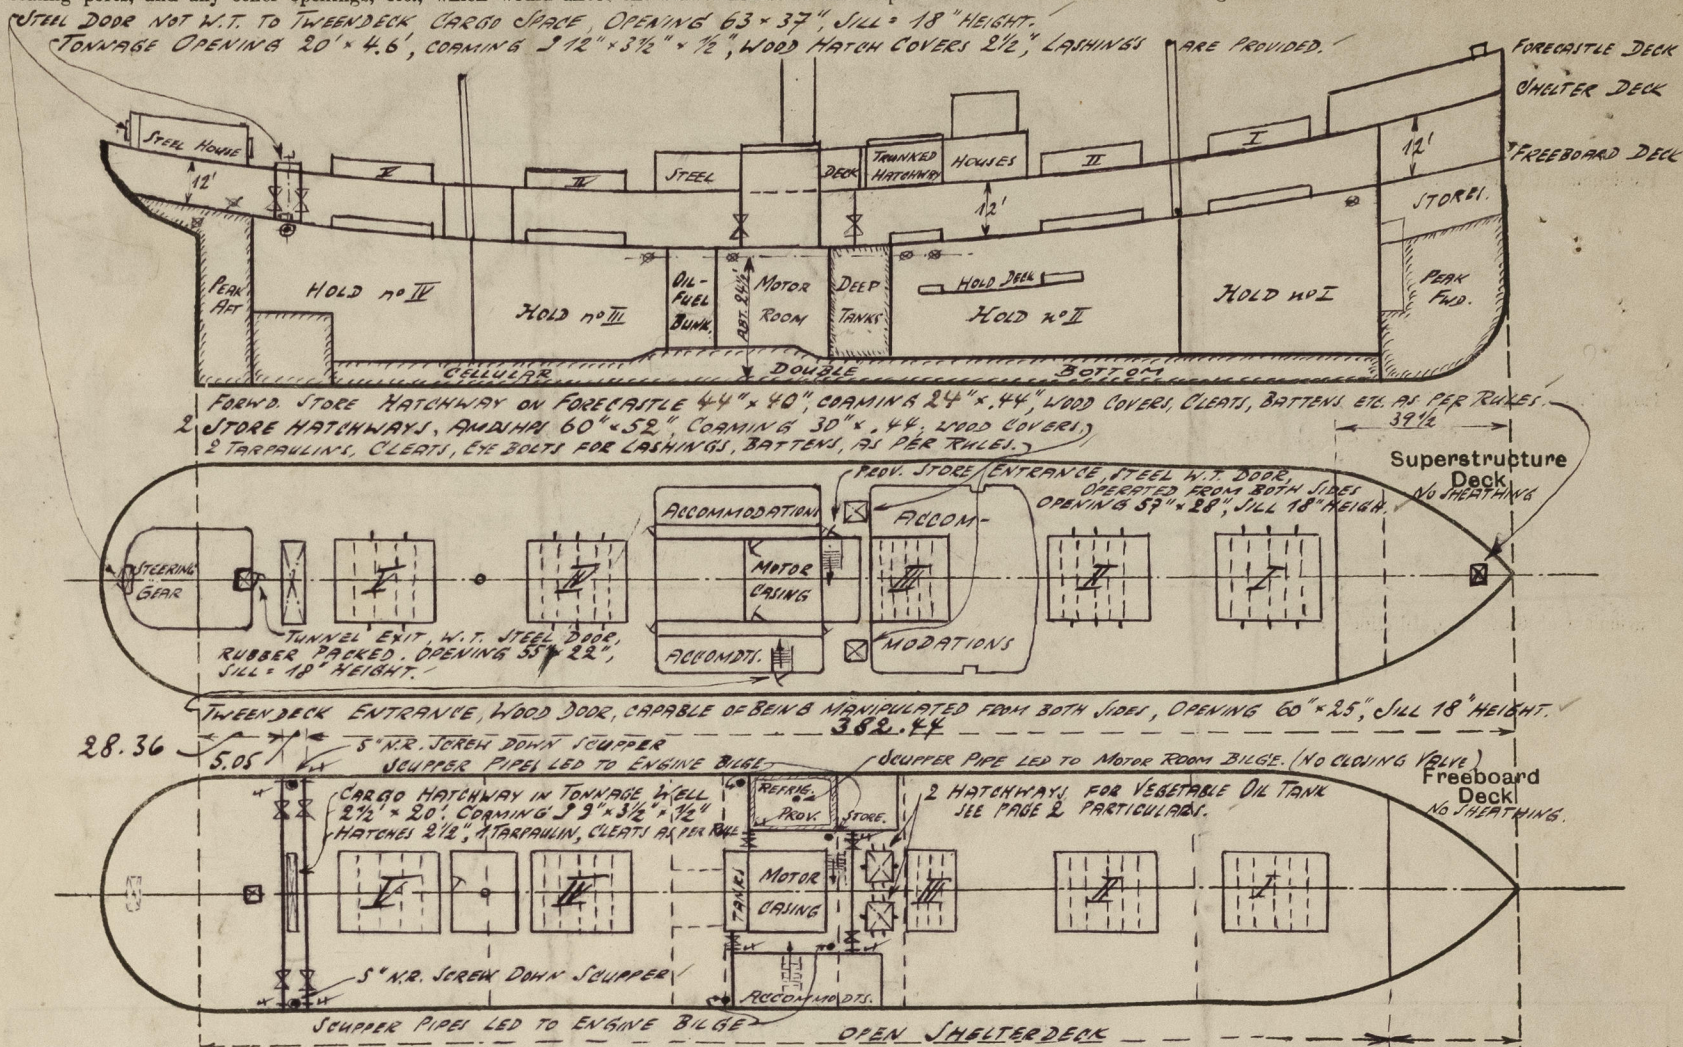 STEEL DOOR NOT W.T. TO TWEENDECK CARGO SPACE, OPENING 63 × 37", SILL = 18" HEIGHT.
TONNAGE OPENING 20' × 4.6', COAMING 12" × 3½" × ½", WOOD HATCH COVERS 2½", LASHINGS ARE PROVIDED.
FORECASTLE DECK
SHELTER DECK
FREEBOARD DECK
STEEL HOUSE
V
IV
STEEL
DECK
TRUNKED HATCHWAY
HOUSES
II
I
12'
12'
12'
STORES.
PEAK AFT
HOLD no IV
HOLD no III
OIL-FUEL BUNK.
ABT. 24½'
MOTOR ROOM
DEEP TANKS
HOLD DECK
HOLD no II
HOLD no I
PEAK FWD.
CELLULAR DOUBLE BOTTOM
FORWD. STORE HATCHWAY ON FORECASTLE 44" × 40", COAMING 24" × .44", WOOD COVERS, CLEATS, BATTENS ETC. AS PER RULES.
2 STORE HATCHWAYS, AMDSHPS 60" × 52", COAMING 30" × .44, WOOD COVERS,
2 TARPAULINS, CLEATS, EYE BOLTS FOR LASHINGS, BATTENS, AS PER RULES.
39½
Superstructure
Deck
NO SHEATHING
PROV. STORE ENTRANCE, STEEL W.T. DOOR,
OPERATED FROM BOTH SIDES
OPENING 57" × 28", SILL 18" HEIGH.
ACCOMMODATION
ACCOM-
STEERING GEAR
V
IV
MOTOR CASING
III
II
I
TUNNEL EXIT, W.T. STEEL DOOR,
RUBBER PACKED. OPENING 55" × 22",
SILL = 18" HEIGHT.
ACCOMDTS.
MODATIONS
TWEENDECK ENTRANCE, WOOD DOOR, CAPABLE OF BEING MANIPULATED FROM BOTH SIDES, OPENING 60" × 25", SILL 18" HEIGHT.
382.44
28.36
5.05
5" N.R. SCREW DOWN SCUPPER
SCUPPER PIPES LED TO ENGINE BILGE
SCUPPER PIPE LED TO MOTOR ROOM BILGE. (NO CLOSING VALVE)
Freeboard
Deck
NO SHEATHING.
CARGO HATCHWAY IN TONNAGE WELL
2½" × 20'. COAMING 9" × 3½" × ½"
HATCHES 2½", 1 TARPAULIN, CLEATS AS PER RULE
REFRIG. PROV.
STORE.
2 HATCHWAYS FOR VEGETABLE OIL TANK
SEE PAGE 2 PARTICULARS.
V
IV
TANKS
MOTOR CASING
III
II
I
5" N.R. SCREW DOWN SCUPPER
ACCOMMODTS.
SCUPPER PIPES LED TO ENGINE BILGE
OPEN SHELTERDECK